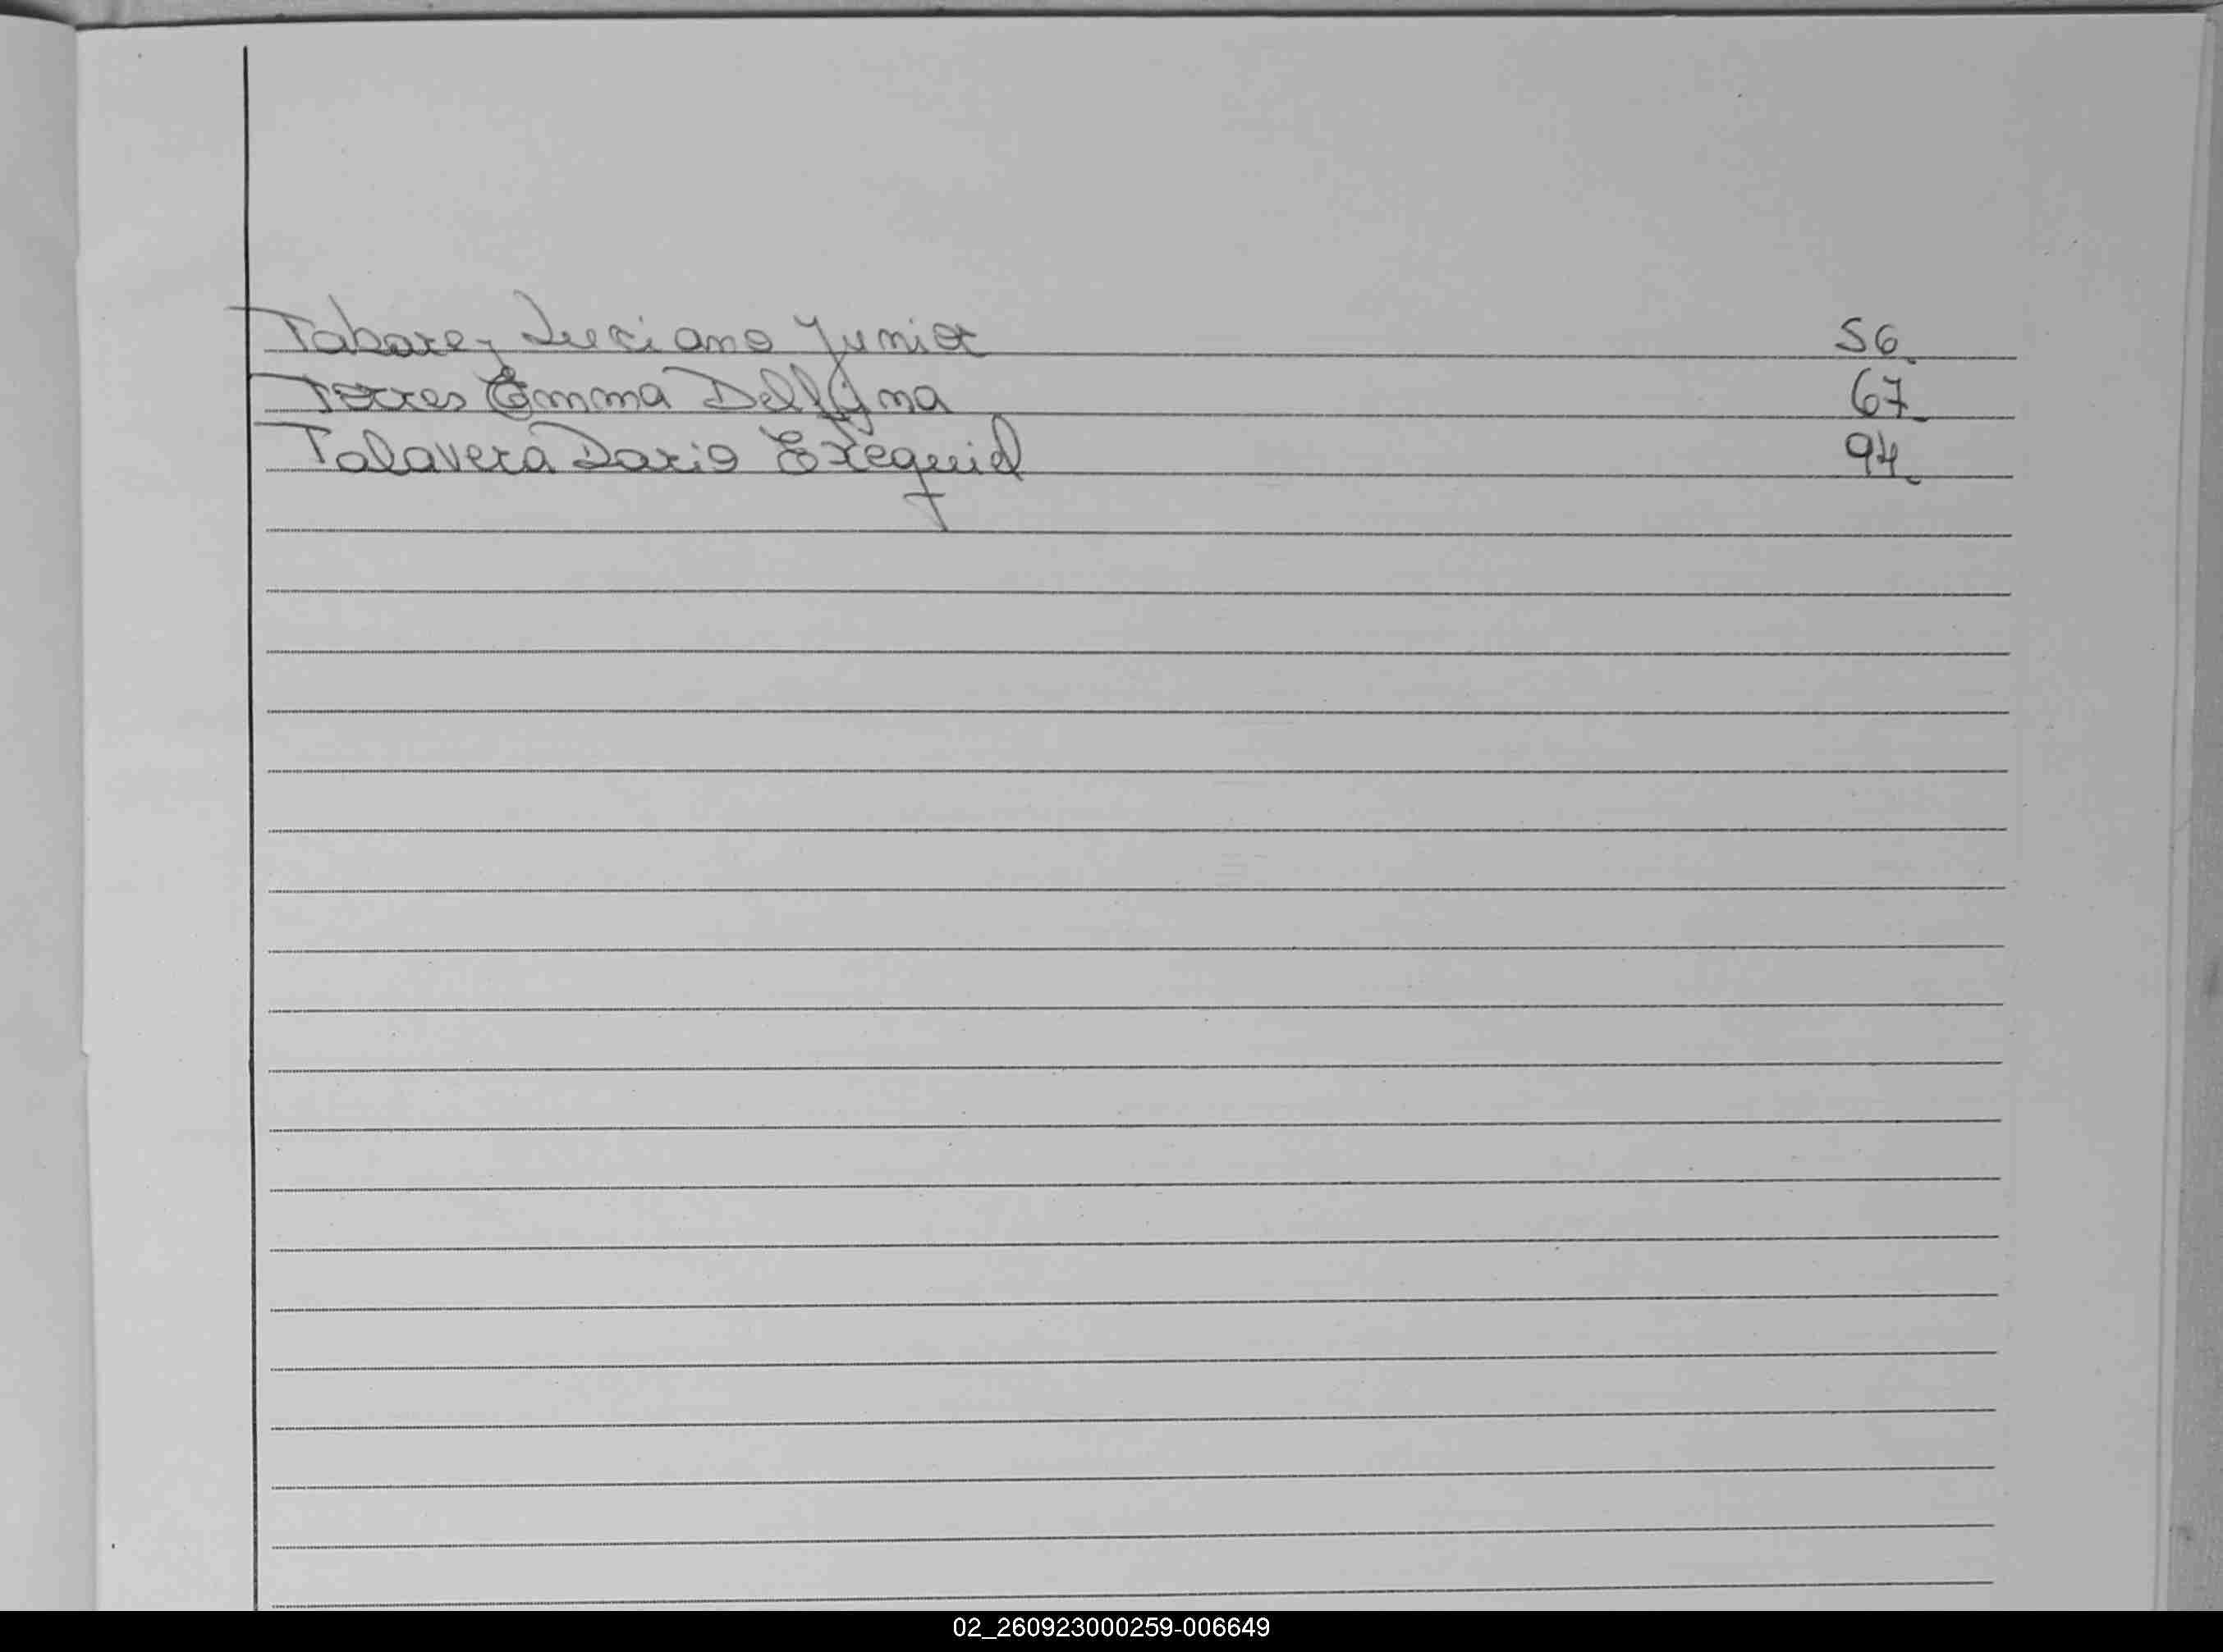 Tabarez Luciano Junior 56
Torres Emma Delfina 67
Talavera Dario Exequiel 94
02_260923000259-006649